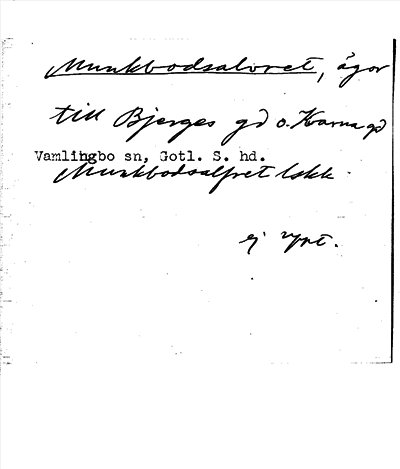 Munkbodsalvret, ägor
till Bjerges gd o. Karna gd
Vamlingbo sn, Gotl. S. hd.
Munkbodsalfret lskk.
ej uppt.